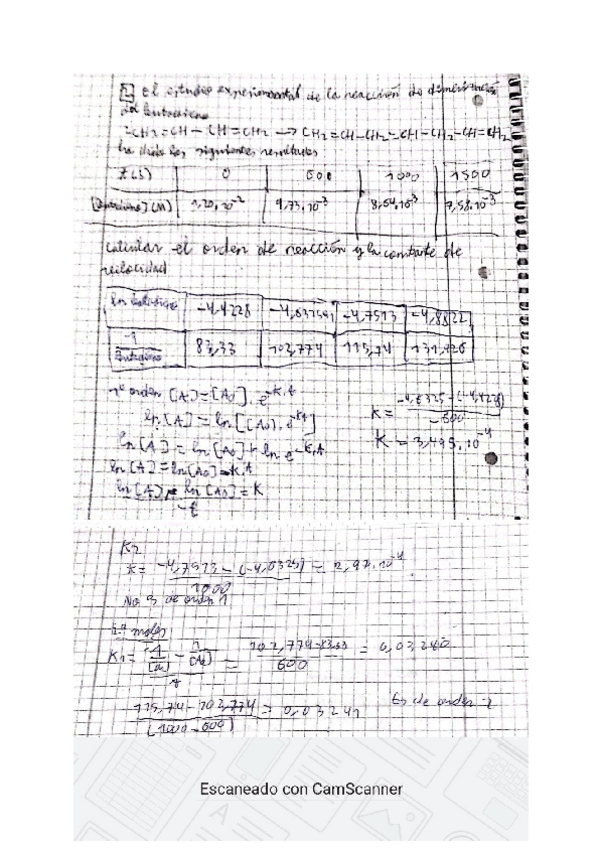 1 el estudio experimental de la reacción de dimerización
del butadieno
CH2=CH-CH=CH2 → CH2=CH-CH2-CH-CH2-CH=CH2
ha dado los siguientes resultados
t(s) 0 600 1000 1500
[Butadieno](M) 1,20.10^-2 9,73.10^-3 8,64.10^-3 7,58.10^-3
Calcular el orden de reacción y la constante de
velocidad
ln butadieno -4,4228 -4,7513 -4,8822
1/Butadieno 83,33 102,774 115,74 131,926
1º orden [A]=[A0].e^-K.t
ln[A]=ln([A0].e^-Kt)
ln[A]=ln[A0]+ln e^-K.t
ln[A]=ln[A0]-K.t
ln[A]-ln[A0]/-t=K
K=-4,6325-(-4,4228)/-600
K=3,495.10^-4
K2
K=-4,7513-(-4,6325)/1000=2,97.10^-4
No es de orden 1
2º orden
K1=1/[A]-1/[A0]/t=102,774-83,33/600=0,03240
115,74-102,774/(1000-600)=0,03241 Es de orden 2
Escaneado con CamScanner